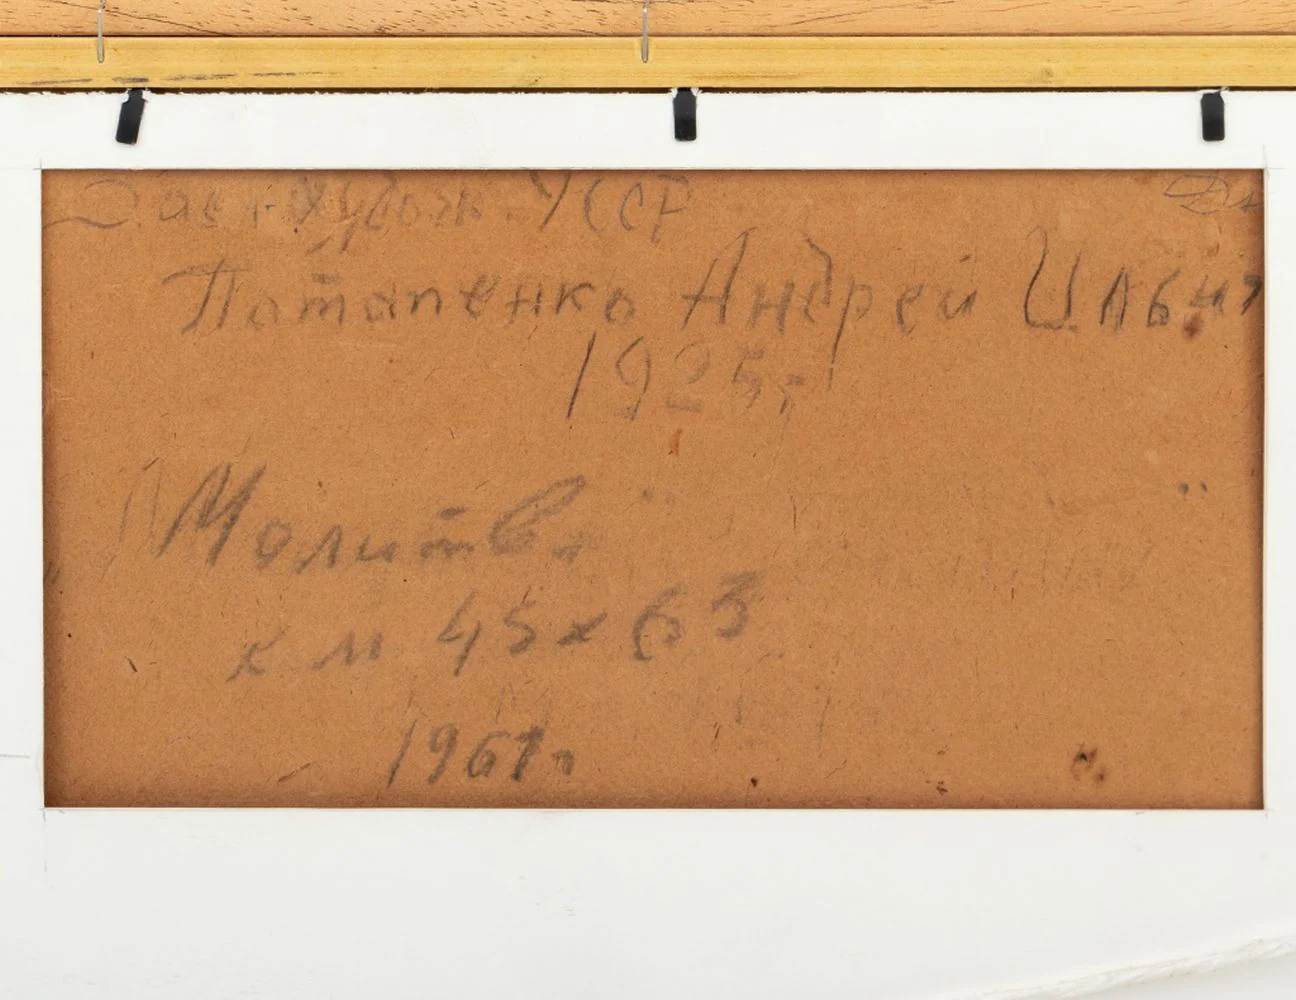 Заслжхудож УССР
Потапенко Андрей Ильич
1925г
Молитва
к м 45х63
1961г